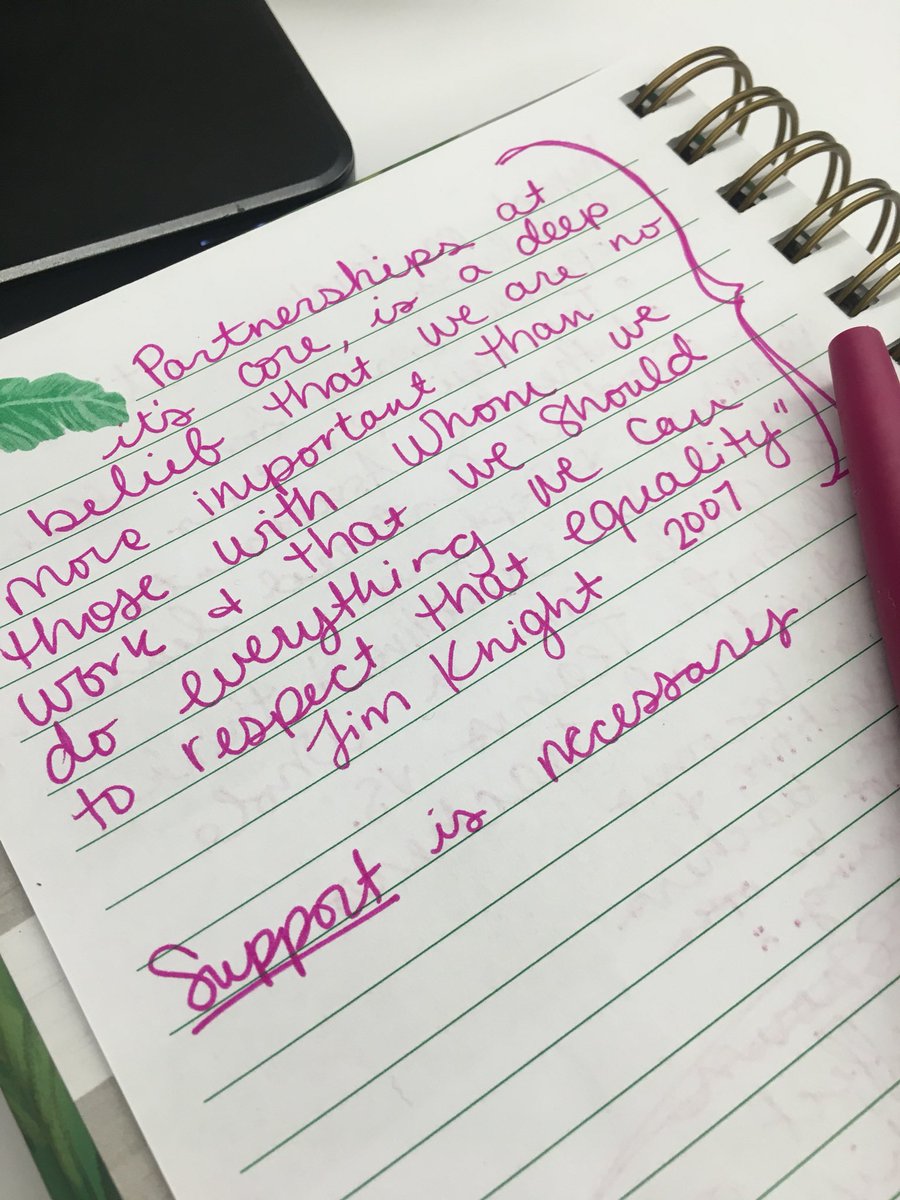 Partnerships at
it's core, is a deep
belief that we are no
more important than
those with whom we
work & that we should
do everything we can
to respect that equality"
Jim Knight 2007
Support is necessary